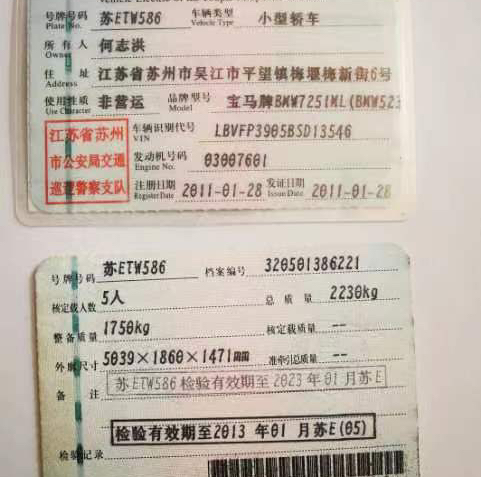 号牌号码 苏ETW586 车辆类型 小型轿车
Plate No. Vehicle Type
所有人 何志洪
Owner
住址 江苏省苏州市吴江市平望镇梅堰梅新街6号
Address
使用性质 非营运 品牌型号 宝马牌BMW7251ML(BMW523
Use Character Model
江苏省苏州
市公安局交通
巡逻警察支队
车辆识别代号 LBVFP3905BSD13546
VIN
发动机号码 03007601
Engine No.
注册日期 2011-01-28 发证日期 2011-01-28
Register Date Issue Date
号牌号码 苏ETW586 档案编号 320501386221
核定载人数 5人 总质量 2230kg
整备质量 1750kg 核定载质量 --
外廓尺寸 5039×1860×1471mm 准牵引总质量 --
备注 苏ETW586检验有效期至2023年01月苏E
检验有效期至2013年01月苏E(05)
检验记录